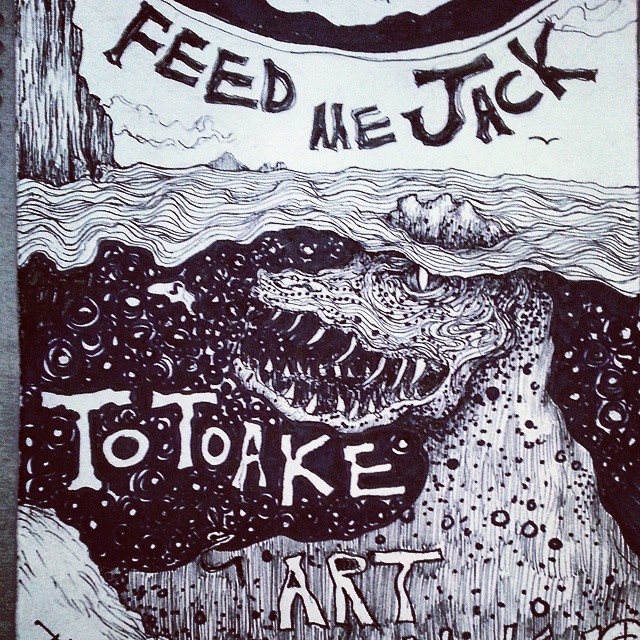 FEED ME JACK
TOTOAKE
ART